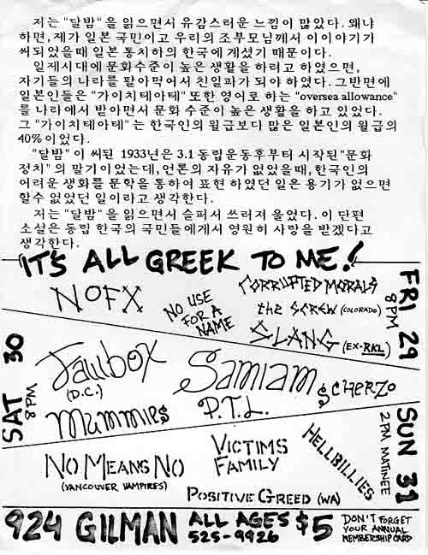 저는 "달밤"을 읽으면서 유감스러운 느낌이 많았다. 왜냐
하면, 제가 일본 국민이고 우리의 조부모님께서 이이야기가
써되었을때 일본 통치하의 한국에 계셨기 때문이다.
일제시대에 문화수준이 높은 생활을 하려고 하였으면,
자기들의 나라를 팔아먹어서 친일파가 되야 하였다. 그반면에
일본인들은 "가이치테아테" 또한 영어로 하는 "oversea allowance"
를 나라에서 받아면서 문화 수준이 높은 생활을 하고 있었다.
그 "가이치테아테"는 한국인의 월급보다 많은 일본인의 월급의
40%이었다.
"달밤"이 써된 1933년은 3.1 동립운동후부터 시작된 "문화
정치"의 말기이었는데, 언론의 자유가 없었을때, 한국인의
어려운 생화를 문학을 통하여 표현 하였던 일은 용기가 없으면
할수 없었던 일이라고 생각한다.
저는 "달밤"을 읽으면서 슬퍼서 쓰러저 울었다. 이 단편
소설은 동립 한국의 국민들에게서 영원히 사랑을 받겠다고
생각한다.
IT'S ALL GREEK TO ME!
FRI 29
8PM
NOFX
NO USE
FOR A
NAME
CORRUPTED MORALS
the SCREW (COLORADO)
SLANG (EX-RKL)
SAT 30
8PM
Jawbox
(D.C.)
Mummies
Samiam
P.T.L.
SCHERZO
SUN 31
2PM MATINEE
NO MEANS NO
(VANCOUVER VAMPIRES)
VICTIMS
FAMILY
HELLBILLIES
POSITIVE GREED (WA)
924 GILMAN
ALL AGES
525-9926
$5
DON'T FORGET
YOUR ANNUAL
MEMBERSHIP CARD